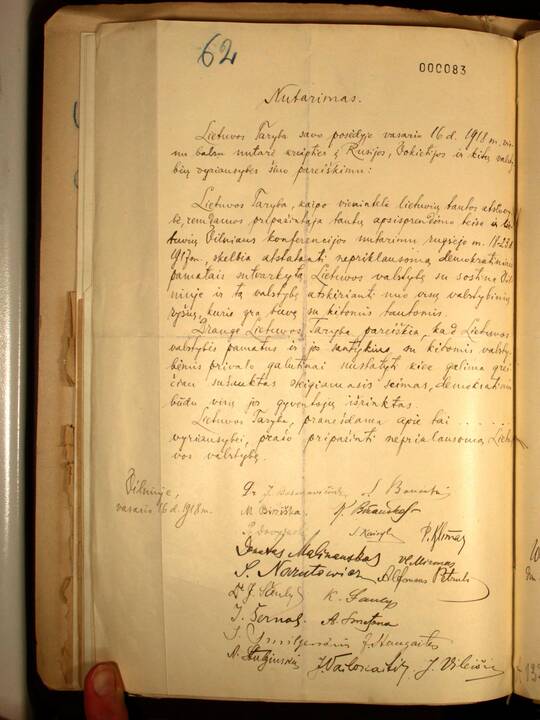 62
000083
Nutarimas.
Lietuvos Taryba savo posėdyje vasario 16 d. 1918 m. vie-
nu balsu nutarė kreiptis į Rusijos, Vokietijos ir kitų valsty-
bių vyriausybes šiuo pareiškimu:
Lietuvos Taryba, kaipo vienintelė lietuvių tautos atstovy-
bė, remdamos pripažintąja tautų apsisprendimo teise ir lie-
tuvių Vilniaus konferencijos nutarimu rugsėjo m. 18-23 d.
1917 m., skelbia atstatanti nepriklausomą demokratiniais
pamatais sutvarkytą Lietuvos valstybę su sostine Vil-
niuje ir tą valstybę atskirianti nuo visų valstybinių
ryšių, kurie yra buvę su kitomis tautomis.
Drauge Lietuvos Taryba pareiškia, kad Lietuvos
valstybės pamatus ir jos santykius su kitomis valsty-
bėmis privalo galutinai nustatyti kiek galima grei-
čiau sušauktas steigiamasis seimas, demokratiniu
būdu visų jos gyventojų išrinktas.
Lietuvos Taryba, pranešdama apie tai . . . . . .
vyriausybei, prašo pripažinti nepriklausomą Lietu-
vos valstybę.
Vilniuje,
vasario 16 d. 1918 m.
Dr J. Basanavičius S. Banaitis
M. Biržiška K. Bizauskas
P. Dovydaitis S. Kairys P. Klimas
Donatas Malinauskas Vl. Mironas
S. Narutowicz Alfonsas Petrulis
Dr J. Šaulys K. Šaulys
J. Šernas A. Smetona
J. Smilgevičius J. Staugaitis
A. Stulginskis J. Vailokaitis J. Vileišis